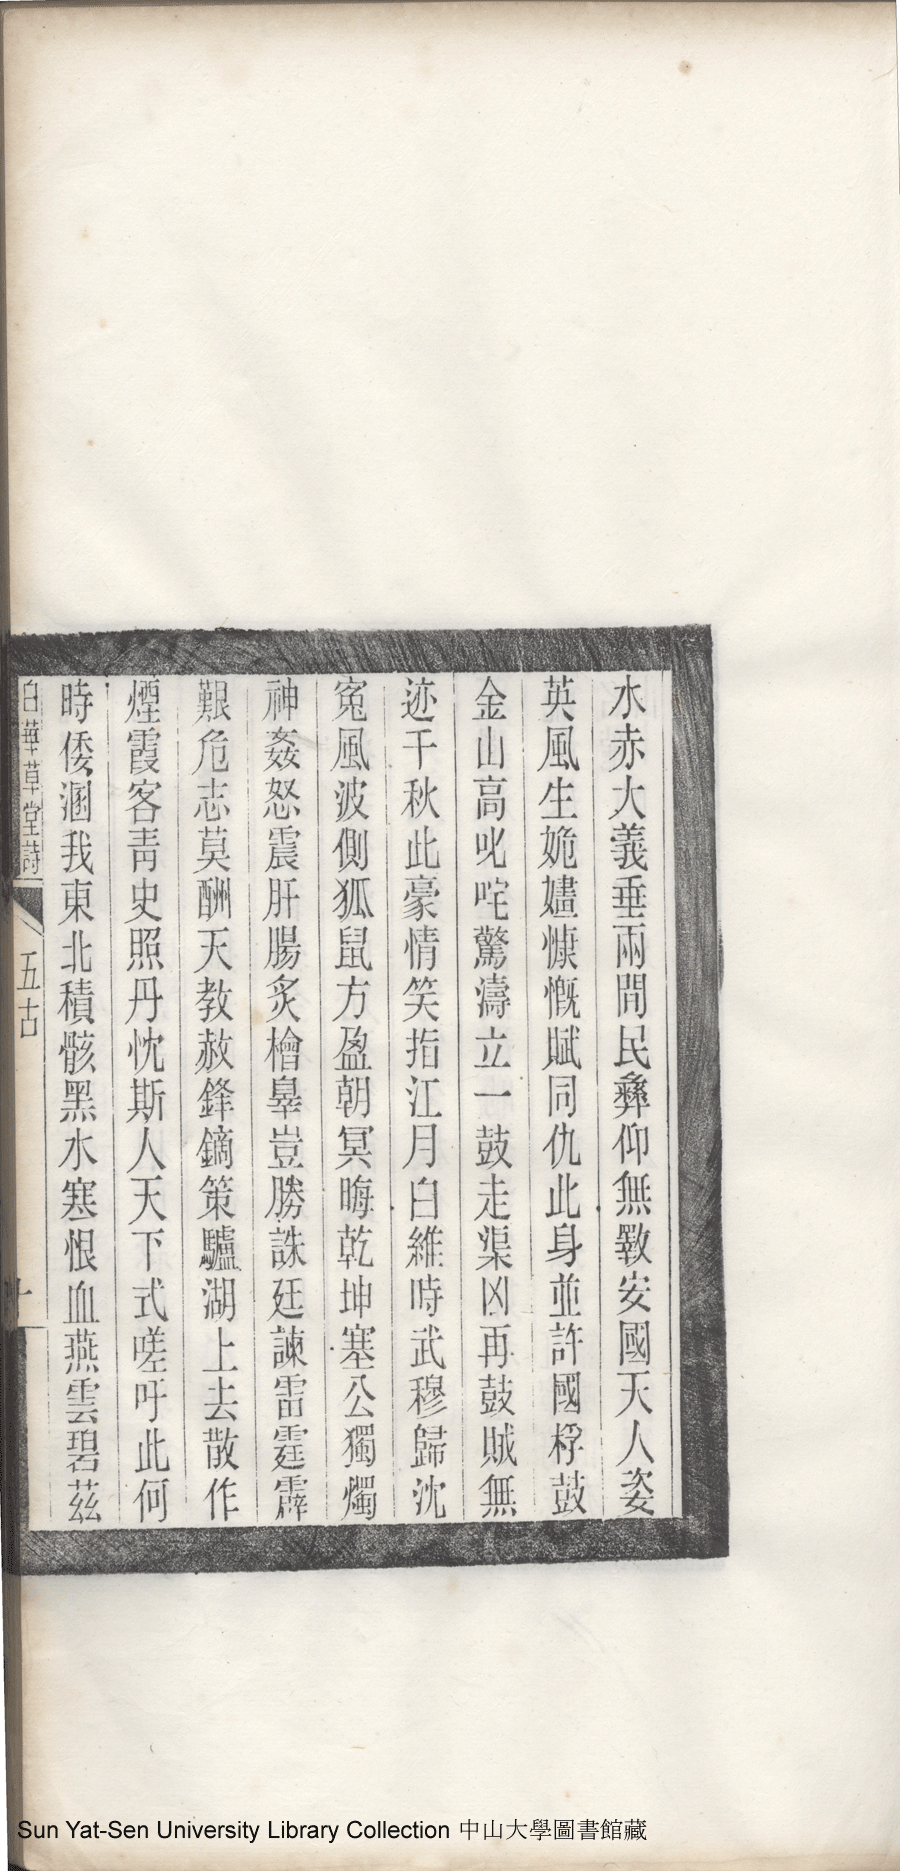 水赤大義垂兩間民彝仰無斁安國天人姿
英風生姽嫿慷慨賦同仇此身並許國桴鼓
金山高叱咤驚濤立一鼓走渠凶再鼓賊無
迹千秋此豪情笑指江月白維時武穆歸沈
冤風波側狐鼠方盈朝冥晦乾坤塞公獨燭
神姦怒震肝腸炙檜辠豈勝誅廷諫雷霆霹
艱危志莫酬天教赦鋒鏑策驢湖上去散作
煙霞客靑史照丹忱斯人天下式嗟吁此何
時倭溷我東北積骸黑水寒恨血燕雲碧茲
白華草堂詩 五古
Sun Yat-Sen University Library Collection 中山大學圖書館藏